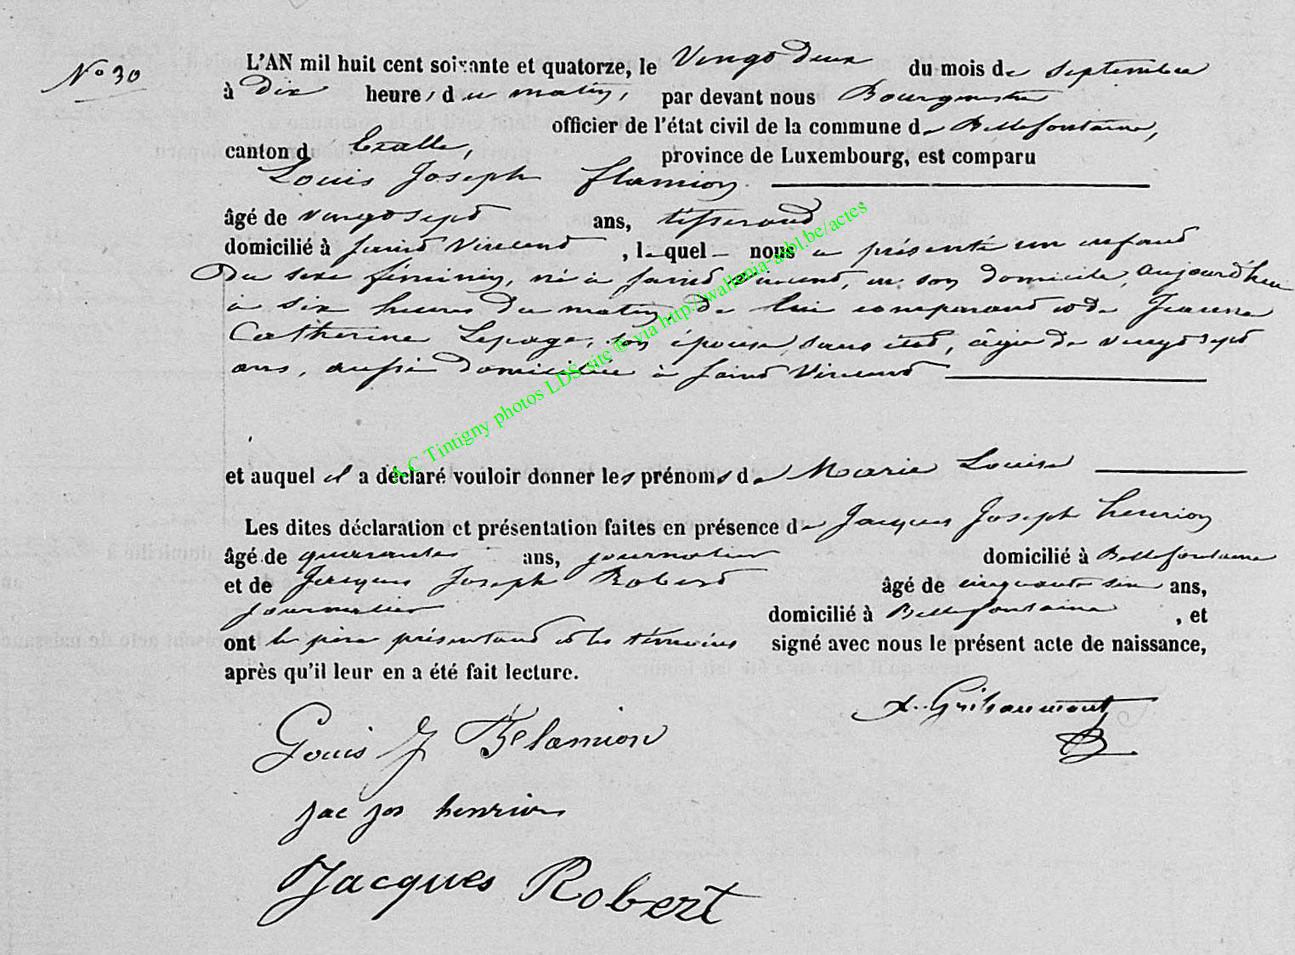 N° 30
L'AN mil huit cent soixante et quatorze, le Vingt deux du mois de septembre
à Dix heures du matin, par devant nous Bourgmestre
officier de l'état civil de la commune de Bellefontaine,
canton d'Etalle, province de Luxembourg, est comparu
Louis Joseph flamion
âgé de vingt sept ans, tisserand
domicilié à Saint Vincent, lequel nous a présenté un enfant
Du sexe féminin, né à Saint Vincent, en son domicile, aujourd'hui
à six heures du matin, de lui comparant et de Jeanne
Catherine Lepage, son épouse, sans état, âgée de vingt sept
ans, aussi domiciliée à Saint Vincent
et auquel il a déclaré vouloir donner les prénoms de Marie Louise
Les dites déclaration et présentation faites en présence de Jacques Joseph henrion
âgé de quarante ans, journalier domicilié à Bellefontaine
et de Jacques Joseph Robert âgé de cinquante six ans,
journalier domicilié à Bellefontaine, et
ont le père présentant et les témoins signé avec nous le présent acte de naissance,
après qu'il leur en a été fait lecture.
Louis J Flamion
jac jos henrion
Jacques Robert
A.C Tintigny photos LDS site © via http://wallonia-asbl.be/actes